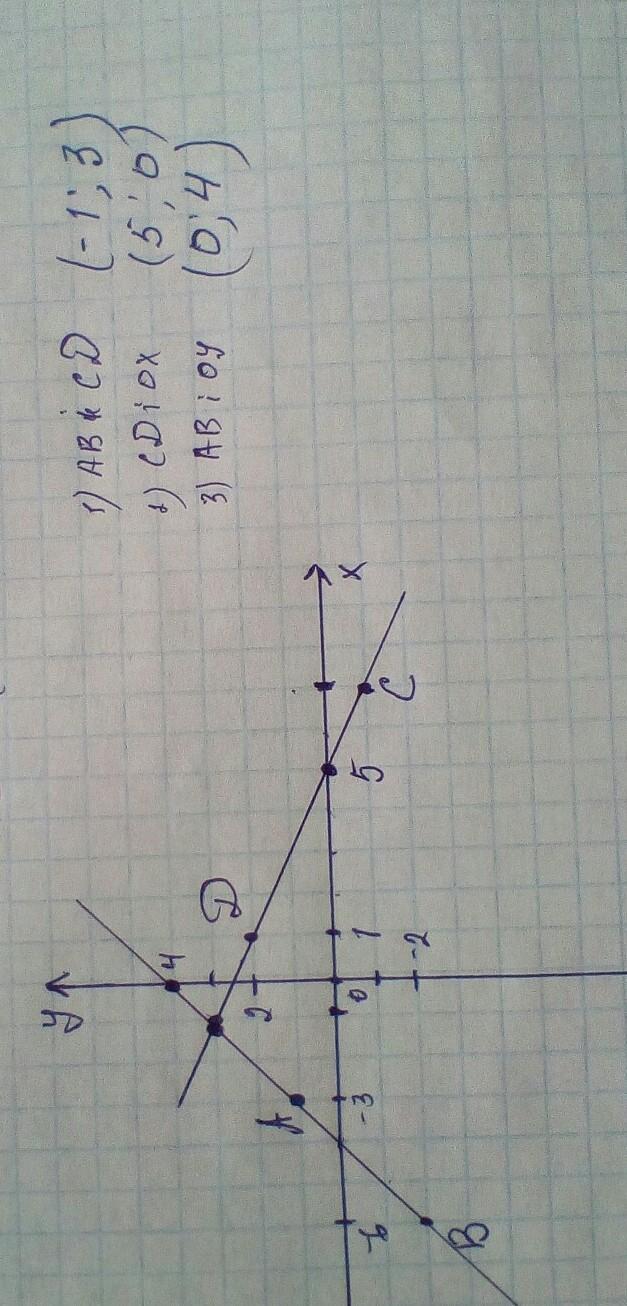 1) AB и CD (-1; 3)
2) CD i OX (5; 0)
3) AB i OY (0; 4)
y
4
D
2
A
-6
-3
0
1
5
x
-2
B
C